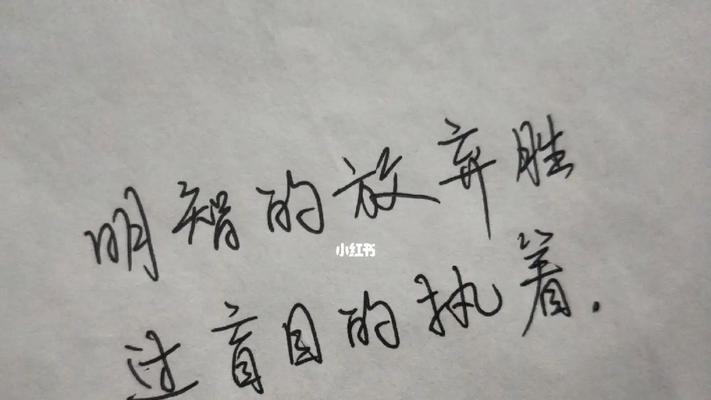 明智的放弃胜
小红书
过盲目的执着.